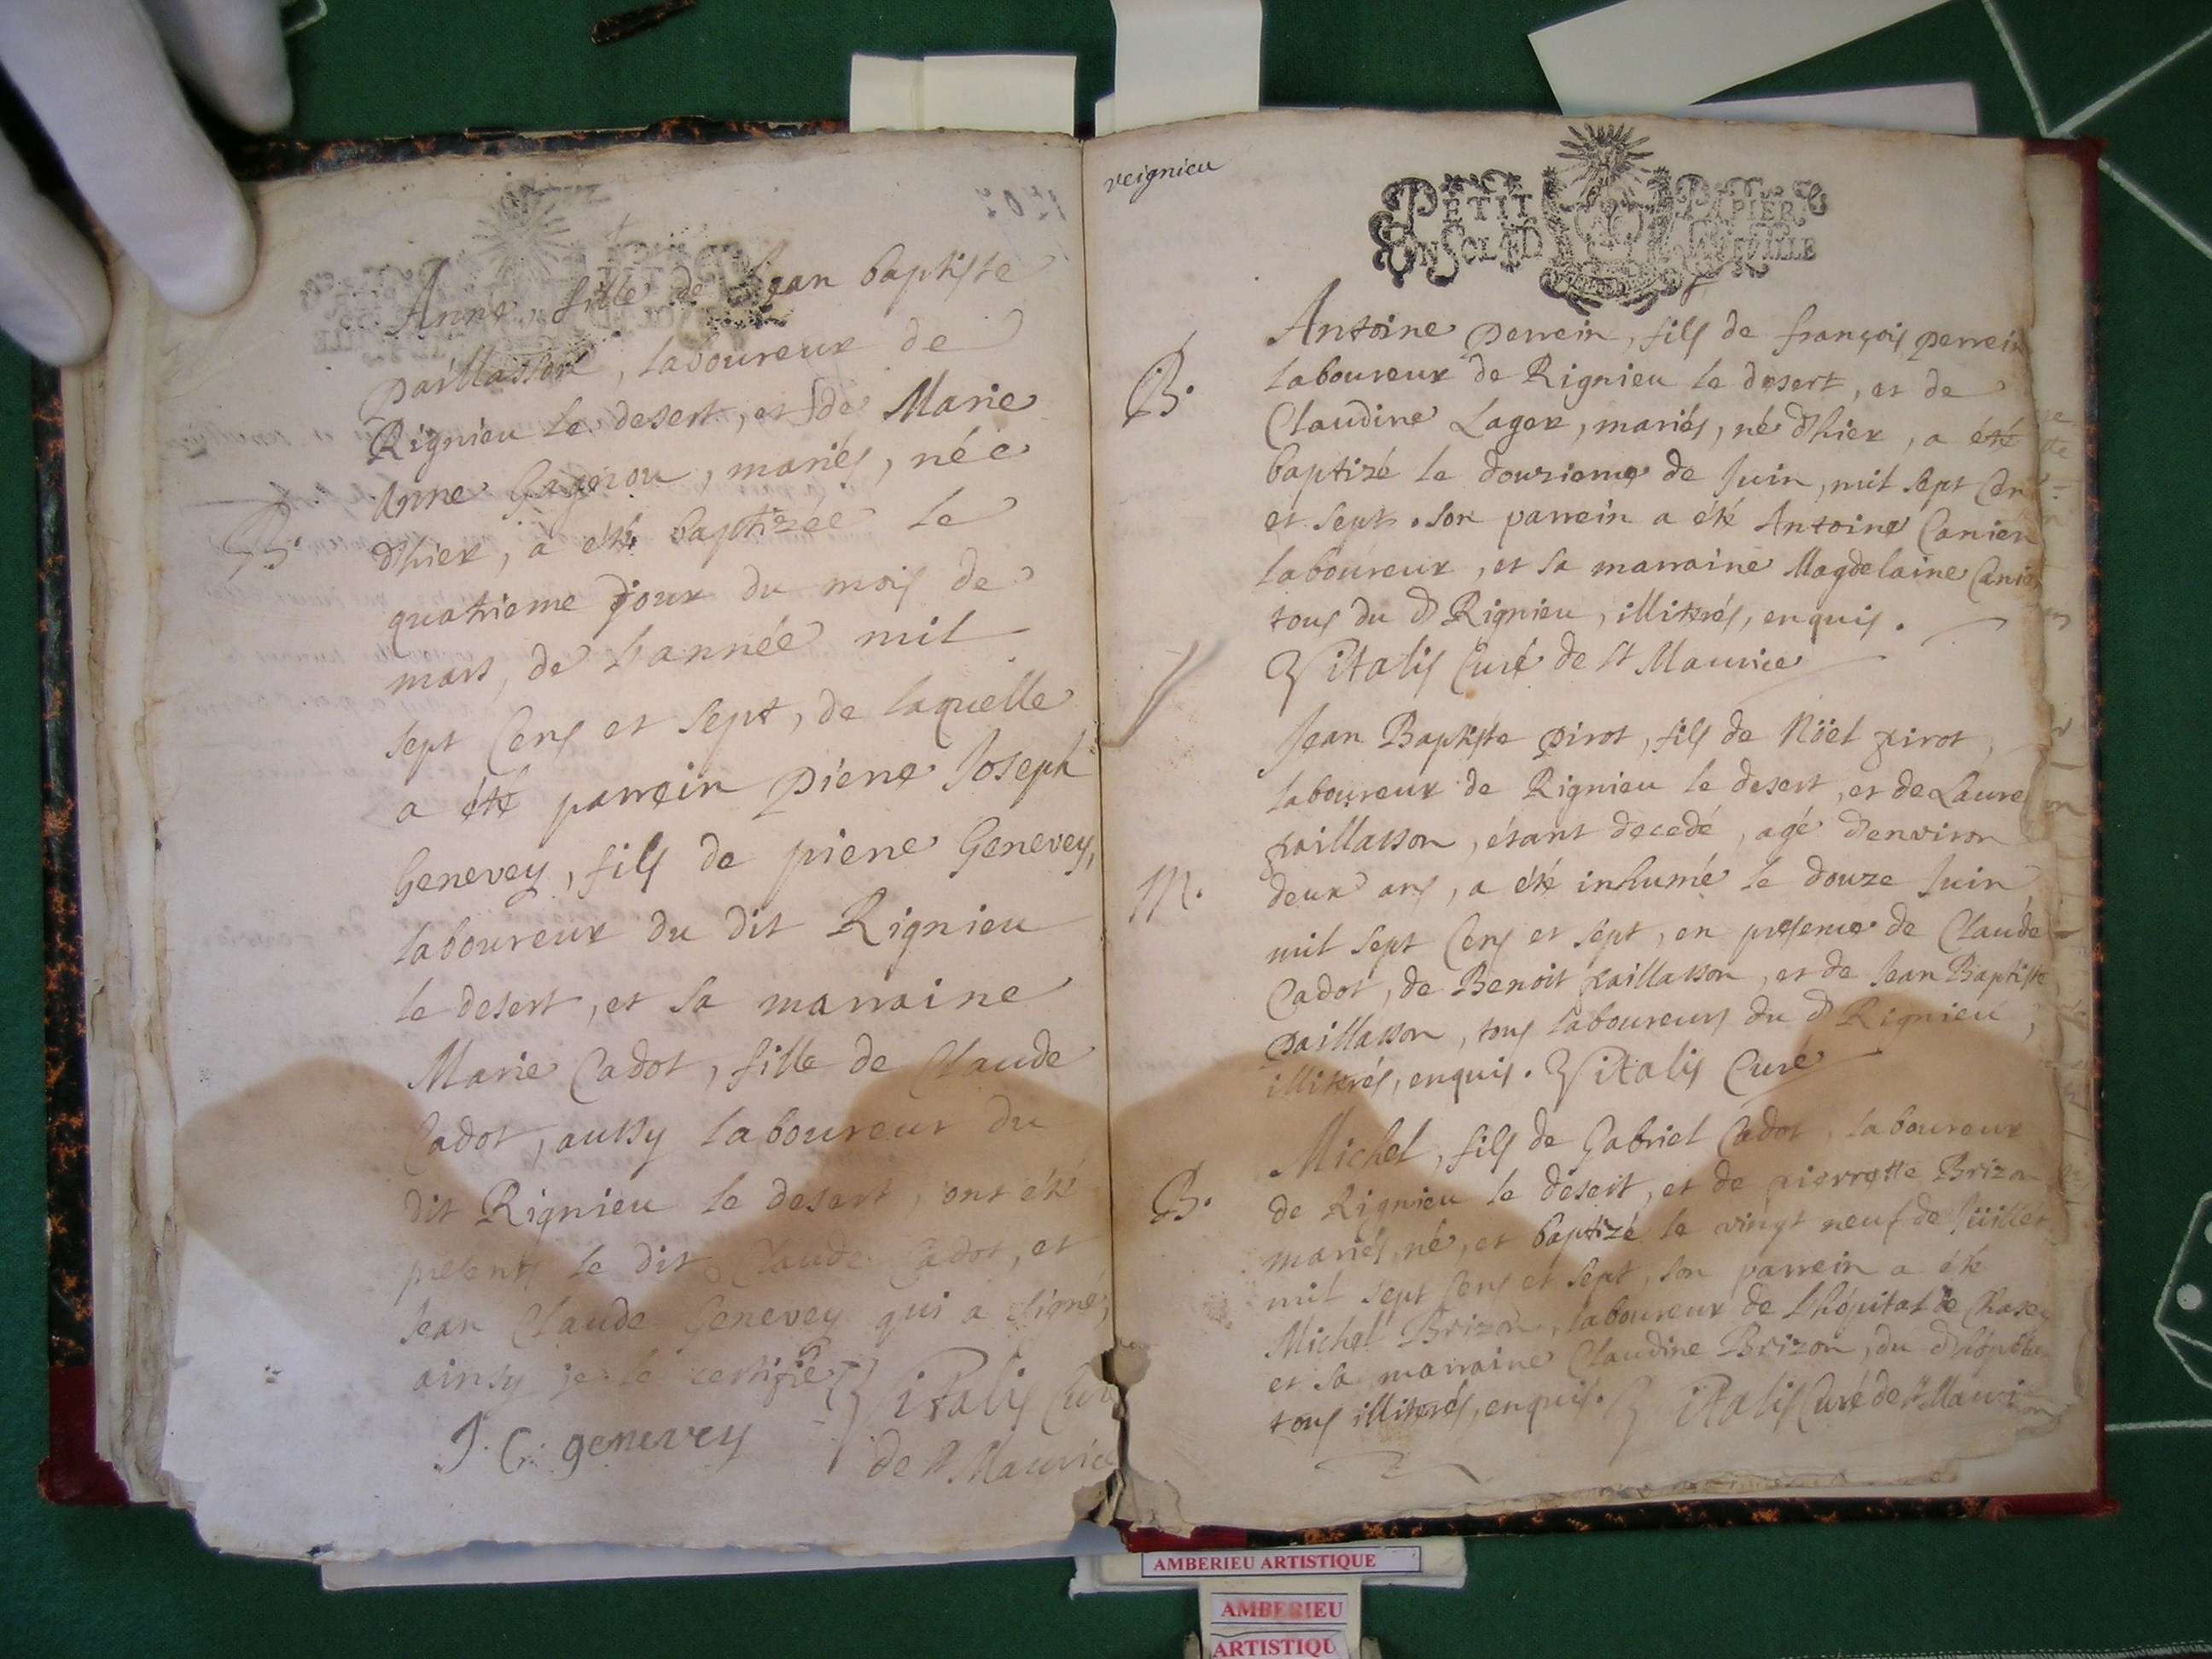 Anne, fille de Jean baptiste
paillasson, laboureur de
Rignieu le desert, et de Marie
Anne Gagnou, mariés, née
B.
d'hier, a été baptizée le
quatrieme jour du mois de
mars, de l'année mil
sept Cens et sept, de laquelle
a été parrein pierre Joseph
Genevey, fils de pierre Genevey,
laboureur du dit Rignieu
le desert, et sa marraine
Marie Cadot, fille de Claude
Cadot, aussy laboureur du
dit Rignieu le desert, ont été
presents le dit Claude Cadot, et
Jean Claude Genevey qui a signé,
ainsy je le certifie Vitalis Curé
J. C. genevey
de St Maurice
reignieu
PETIT PAPIER
UN SOL LA FEUILLE
Antoine perrein, fils de françois perrein
B.
laboureur de Rignieu le desert, et de
Claudine Lager, mariés, né d'hier, a été
baptizé le douzieme de Juin, mil sept Cens
et sept. son parrein a été Antoine Canier
laboureur, et sa marraine Magdelaine Canier
tous du d Rignieu, illitérés, enquis.
Vitalis Curé de St Maurice
Jean Baptiste pirot, fils de Nöel pirot,
laboureur de Rignieu le desert, et de Laure
paillasson, étant decedé, agé d'environ
M.
deux ans, a été inhumé le douze Juin
mil sept Cens et sept, en presence de Claude
Cadot, de Benoit paillasson, et de Jean Baptiste
paillasson, tous laboureurs du d Rignieu,
illitérés, enquis. Vitalis Curé
Michel, fils de Gabriel Cadot, laboureur
B.
de Rignieu le desert, et de pierrette Brizon
mariés, né, et baptizé le vingt neuf de Jüillet
mil sept Cens et sept, son parrein a été
Michel Brizon, laboureur de l'hópital de
et sa marraine Claudine Brizon, du d hópital
tous illitérés, enquis. Vitalis Curé de St Maurice
AMBERIEU ARTISTIQUE
AMBERIEU
ARTISTIQU